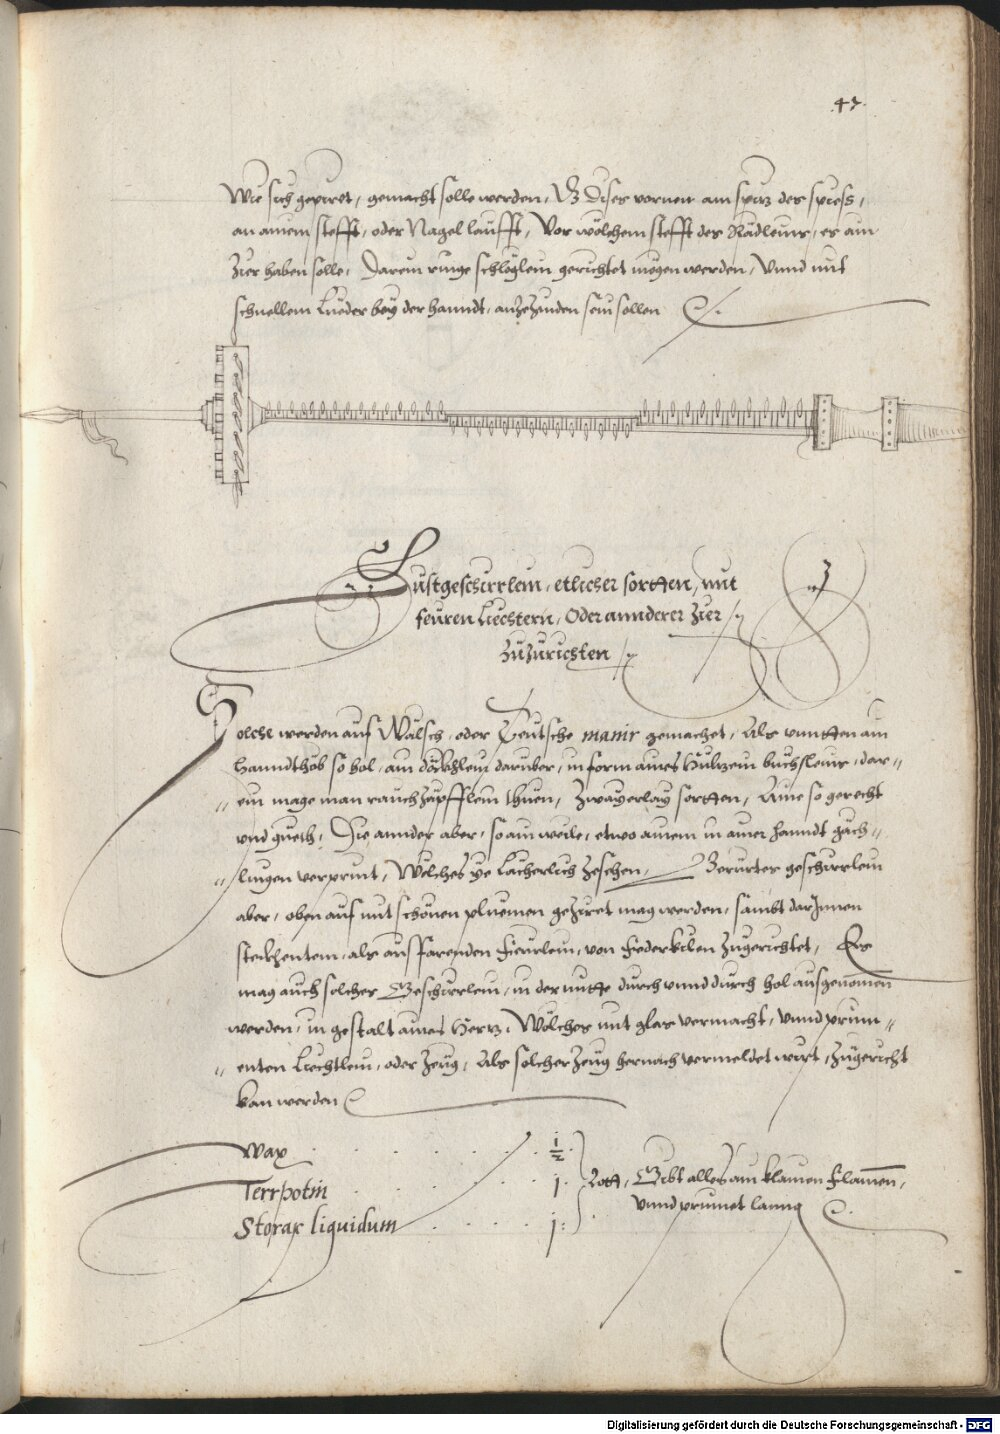 47.
Wie sich gepüret, gemacht solle werden, Vß Dises vornen am spitz des spiess,
an ainem stefft, oder Nagel laufft, Vor wölchem stefft des Rädleins, er ain
Zier haben solle, Darein ringe schlöglein gerichtet mögen werden, Vnnd mit
schnellem Lueder bey der hanndt, anZeZinden sein sollen
Lustgeschirrlein, etlicher sortten, mit
feuren Liechtern, Oder annderer Zier
ZuZurichten
Solche werden auf Wälsch, oder Teutsche manir gemachet, Als vnntten ain
Hanndthöb so hol, ain döckhlein daruber, in form aines Hültzein buchsleins, dar=
=ein mage man rauchZäpfflein thuen, Zwayerlay sortten, Aine so gerecht
vnd gueth, Die annder aber, so ain weile, etwo ainem in ainer hanndt gäch=
=lingen verprint, Wölches ye Lächerlich Zesehen, Berürtes geschirrlein
aber, oben auf mit schönen pluemen geZiret mag werden, sambt darJnnen
steckhentem, als aus farenden Feurlein, von Federkilen Zugerichtet, Es
mag auch solches Geschirrlein, in der mitte durch vnnd durch hol ausgenomen
werden, in gestalt aines Hertz, Wölches mit glas vermacht, vnnd prinn=
=enten Liechtlein, oder Zeug, Als solcher Zeug hernach vermeldet wirt, Zugericht
kan werden
Wax . . . . . . ½ .
Terrpotin . . . . . 1. Lott, Gibt alles ain klainen Flamen,
Storax liquidum . . . . 1: vnnd prinnet lanng
Digitalisierung gefördert durch die Deutsche Forschungsgemeinschaft - DFG